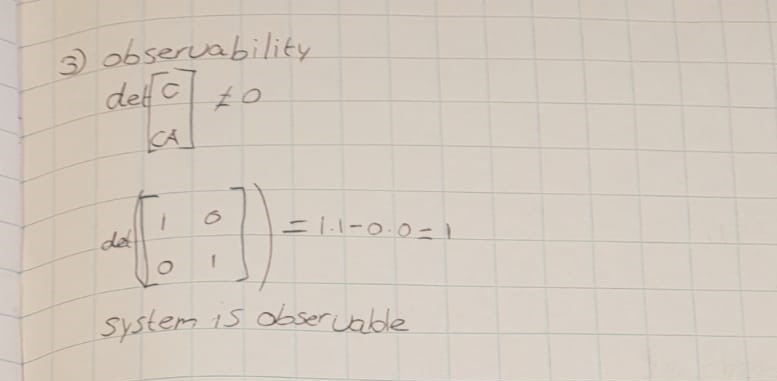 3) observability
det[C
CA] ≠ 0
det[1 0
0 1]) = 1.1-0.0=1
system is observable